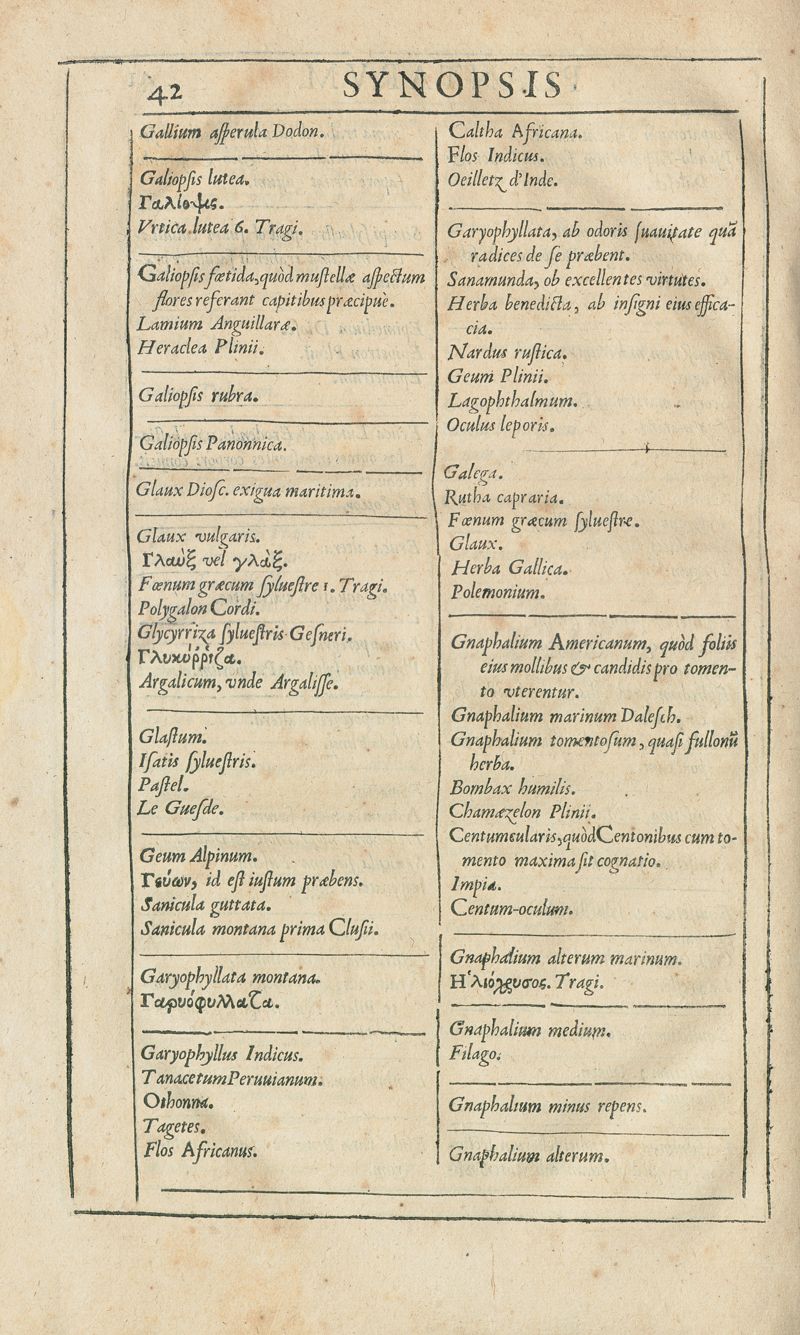 42
SYNOPSIS
Gallium aſperula Dodon.
Galiopſis lutea.
Γαλίοψις.
Vrtica lutea 6. Tragi.
Galiopſis fœtida, quòd muſtellæ aſpectum
flores referant capitibus præcipuè.
Lamium Anguillaræ.
Heraclea Plinii.
Galiopſis rubra.
Galiopſis Panonnica.
Glaux Dioſc. exigua maritima.
Glaux vulgaris.
Γλαὺξ vel γλὰξ.
Fœnum græcum ſylueſtre 1. Tragi.
Polygalon Cordi.
Glycyrriza ſylueſtris Geſneri.
Γλυκύῤῥιζα.
Argalicum, vnde Argaliſſe.
Glaſtum.
Iſatis ſylueſtris.
Paſtel.
Le Gueſde.
Geum Alpinum.
Γεύων, id eſt iuſtum præbens.
Sanicula guttata.
Sanicula montana prima Cluſii.
Garyophyllata montana.
Γαρυόφυλλαζα.
Garyophyllus Indicus.
Tanacetum Peruuianum.
Othonna.
Tagetes.
Flos Africanus.
Caltha Africana.
Flos Indicus.
Oeilletz d'Inde.
Garyophyllata, ab odoris ſuauitate quā
radices de ſe præbent.
Sanamunda, ob excellentes virtutes.
Herba benedicta, ab inſigni eius effica-
cia.
Nardus ruſtica.
Geum Plinii.
Lagophthalmum.
Oculus leporis.
Galega.
Rutha capraria.
Fœnum græcum ſylueſtre.
Glaux.
Herba Gallica.
Polemonium.
Gnaphalium Americanum, quòd foliis
eius mollibus & candidis pro tomen-
to vterentur.
Gnaphalium marinum Daleſch.
Gnaphalium tomentoſum, quaſi fullonū
herba.
Bombax humilis.
Chamæzelon Plinii.
Centumcularis, quòd Centonibus cum to-
mento maxima ſit cognatio.
Impia.
Centum-oculum.
Gnaphalium alterum marinum.
Ἡλιόχρυσος. Tragi.
Gnaphalium medium.
Filago.
Gnaphalium minus repens.
Gnaphalium alterum.